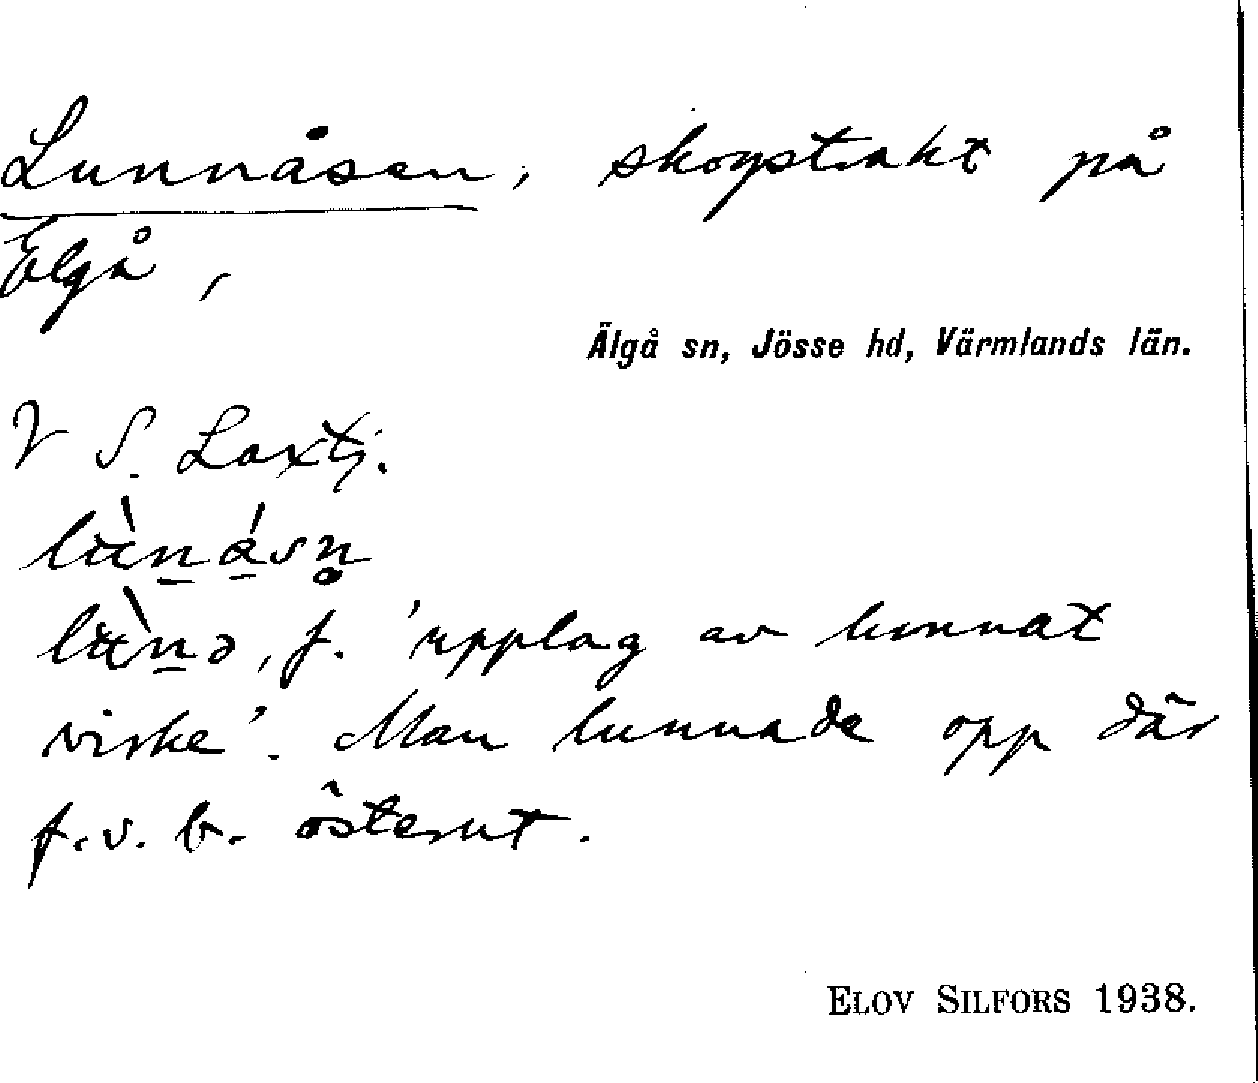 Lunnåsen, skogstrakt på
Elgå,
Älgå sn, Jösse hd, Värmlands län.
V S. Laxtj.
lu̇̀nåsn̥
lu̇̀nə, f. 'upplag av lunnat
virke'. Man lunnade opp där
f.v.b. österut.
ELOV SILFORS 1938.